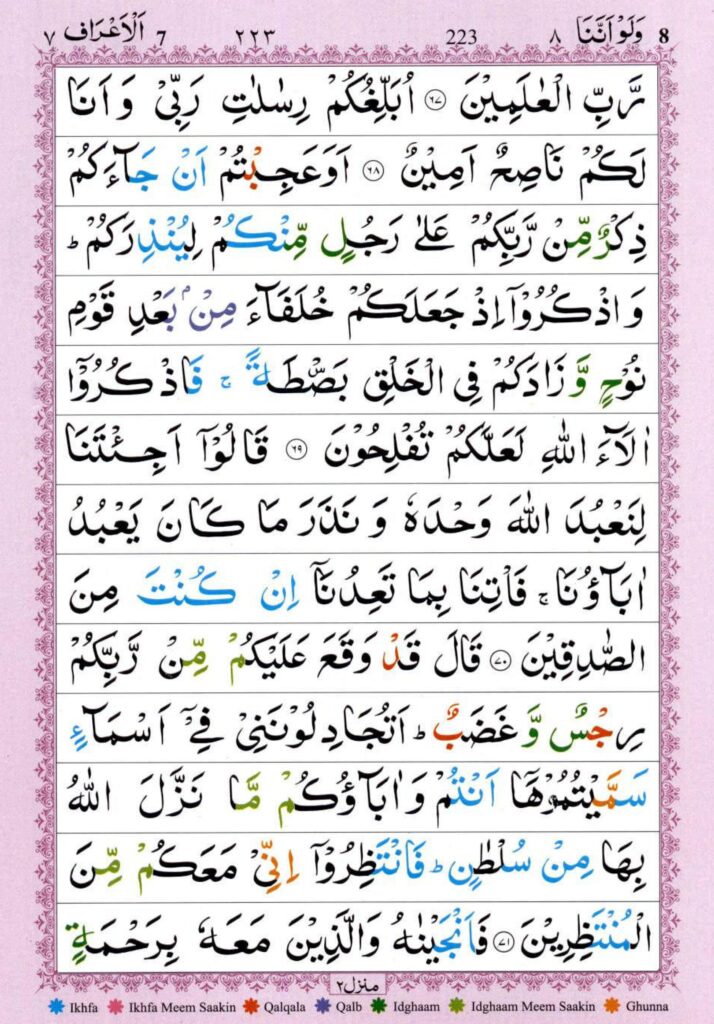 اَلْاَعْرَاف ٧ 7 ٢٢٣ 223 وَلَوْ اَنَّنَا ٨ 8
رَّبِّ الْعٰلَمِيْنَ ۝٦٧ اُبَلِّغُكُمْ رِسٰلٰتِ رَبِّيْ وَ اَنَا
لَكُمْ نَاصِحٌ اَمِيْنٌ ۝٦٨ اَوَعَجِبْتُمْ اَنْ جَآءَكُمْ
ذِكْرٌ مِّنْ رَّبِّكُمْ عَلٰى رَجُلٍ مِّنْكُمْ لِيُنْذِرَكُمْ ؕ
وَ اذْكُرُوْۤا اِذْ جَعَلَكُمْ خُلَفَآءَ مِنْۢ بَعْدِ قَوْمِ
نُوْحٍ وَّ زَادَكُمْ فِي الْخَلْقِ بَصْۜطَةً ۚ فَاذْكُرُوْۤا
اٰلَآءَ اللّٰهِ لَعَلَّكُمْ تُفْلِحُوْنَ ۝٦٩ قَالُوْۤا اَجِئْتَنَا
لِنَعْبُدَ اللّٰهَ وَحْدَهٗ وَ نَذَرَ مَا كَانَ يَعْبُدُ
اٰبَآؤُنَا ۚ فَاْتِنَا بِمَا تَعِدُنَاۤ اِنْ كُنْتَ مِنَ
الصّٰدِقِيْنَ ۝٧٠ قَالَ قَدْ وَقَعَ عَلَيْكُمْ مِّنْ رَّبِّكُمْ
رِجْسٌ وَّ غَضَبٌ ؕ اَتُجَادِلُوْنَنِيْ فِيْۤ اَسْمَآءٍ
سَمَّيْتُمُوْهَاۤ اَنْتُمْ وَ اٰبَآؤُكُمْ مَّا نَزَّلَ اللّٰهُ
بِهَا مِنْ سُلْطٰنٍ ؕ فَانْتَظِرُوْۤا اِنِّيْ مَعَكُمْ مِّنَ
الْمُنْتَظِرِيْنَ ۝٧١ فَاَنْجَيْنٰهُ وَالَّذِيْنَ مَعَهٗ بِرَحْمَةٍ
منزل٢
Ikhfa Ikhfa Meem Saakin Qalqala Qalb Idghaam Idghaam Meem Saakin Ghunna